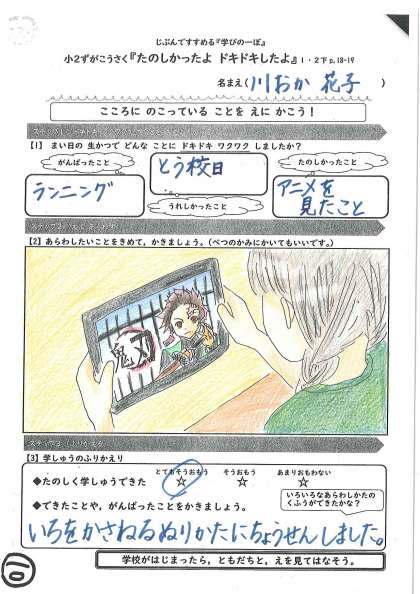 じぶんですすめる『学びの一歩』
小2ずがこうさく『たのしかったよ ドキドキしたよ』1・2下p.18-19
名まえ(川おか 花子 )
こころに のこっている ことを えに かこう!
【1】 まい日の 生かつで どんな ことに ドキドキ ワクワク しましたか?
がんばったこと
ランニング
とう校日
うれしかったこと
たのしかったこと
アニメを
見たこと
【2】あらわしたいことをきめて,かきましょう。(べつのかみにかいてもいいです。)
鬼刃
【3】学しゅうのふりかえり
とてもそうおもう そうおもう あまりおもわない
◆たのしく学しゅうできた ☆ ☆ ☆
いろいろなあらわしかたの
くふうができたかな?
◆できたことや,がんばったことをかきましょう。
いろをかさねるぬりかたにちょうせんしました。
学校がはじまったら,ともだちと,えを見てはなそう。